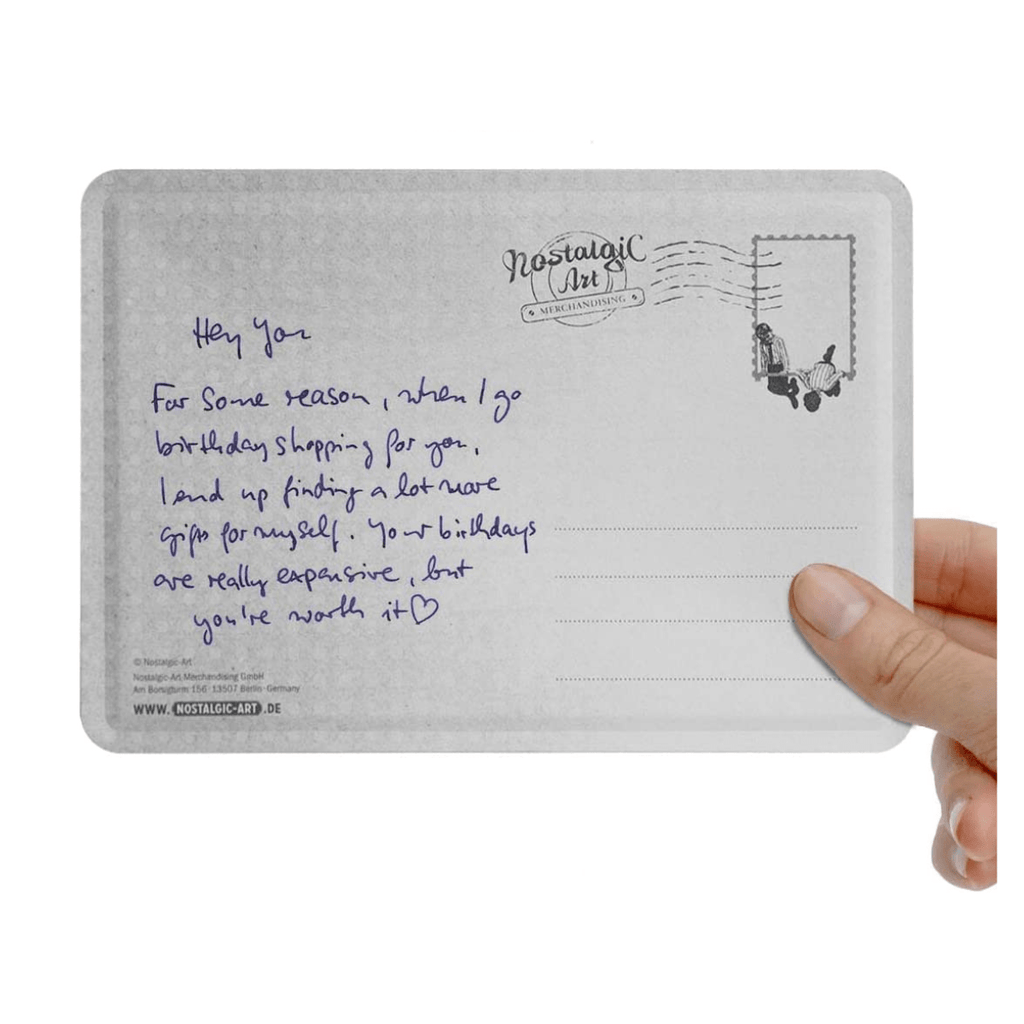 Nostalgic
Art
MERCHANDISING
Hey You
For some reason, when I go
birthday shopping for you,
I end up finding a lot more
gifts for myself. Your birthdays
are really expensive, but
you're worth it♡
© Nostalgic-Art
Nostalgic-Art Merchandising GmbH
Am Borsigturm 156 · 13507 Berlin · Germany
WWW. NOSTALGIC-ART .DE